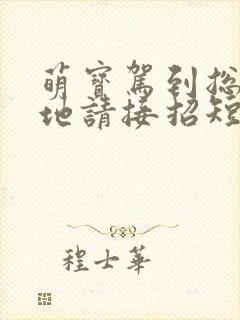 萌寶駕到總
地請接招短
程士華